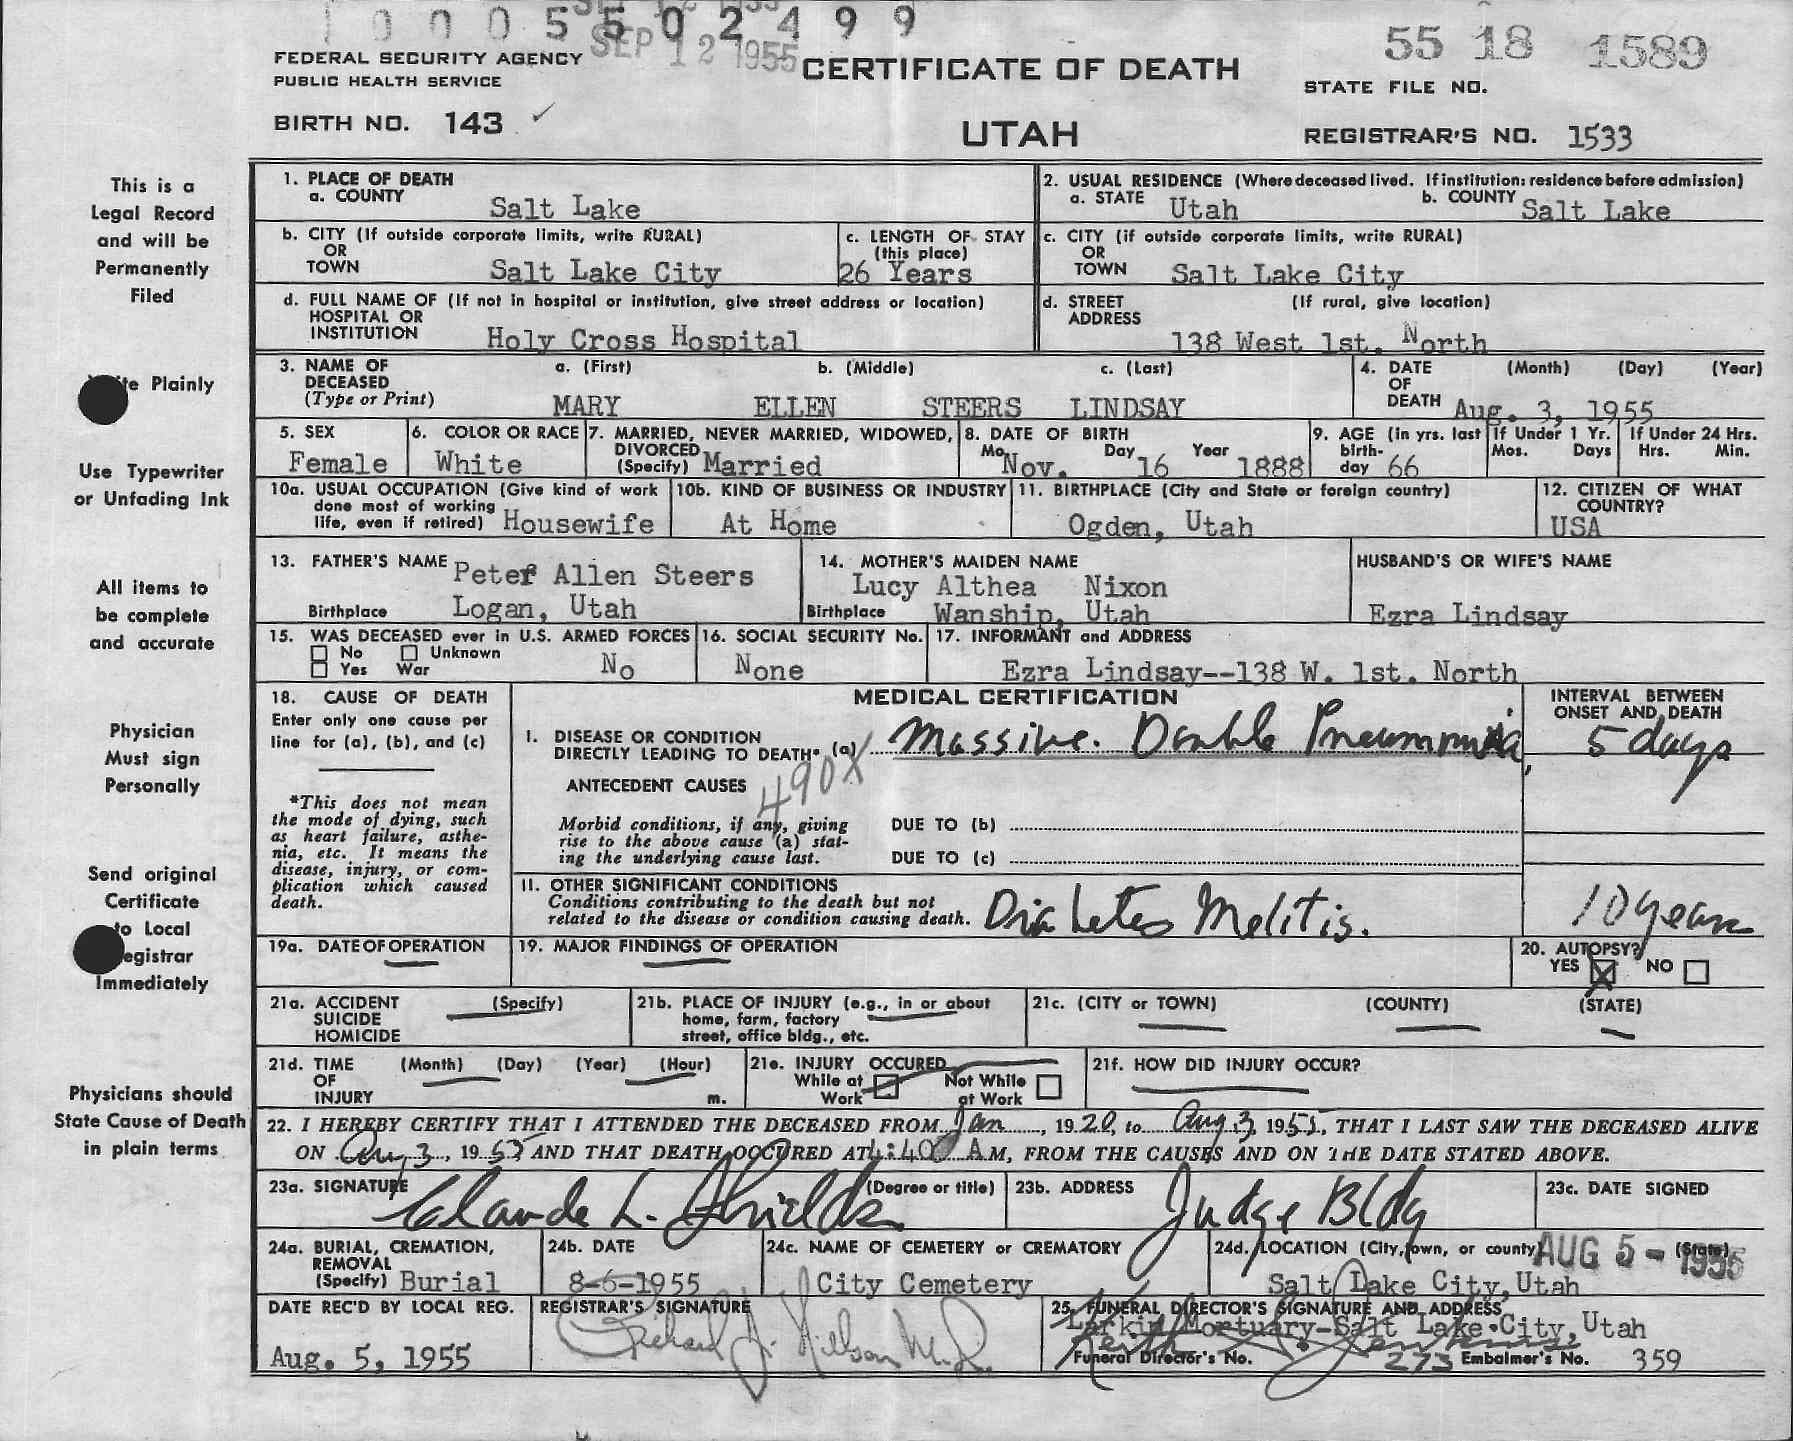 1 0 0 0 5 5 0 2 4 9 9
SEP 12 1955
55 18 1589
FEDERAL SECURITY AGENCY
PUBLIC HEALTH SERVICE
CERTIFICATE OF DEATH
STATE FILE NO.
BIRTH NO. 143 ✓
UTAH
REGISTRAR'S NO. 1533
This is a
Legal Record
and will be
Permanently
Filed
Plainly
Use Typewriter
or Unfading Ink
All items to
be complete
and accurate
Physician
Must sign
Personally
Send original
Certificate
to Local
egistrar
Immediately
Physicians should
State Cause of Death
in plain terms
1. PLACE OF DEATH
a. COUNTY Salt Lake
2. USUAL RESIDENCE (Where deceased lived. If institution: residence before admission)
a. STATE Utah b. COUNTY Salt Lake
b. CITY (If outside corporate limits, write RURAL)
OR
TOWN Salt Lake City
c. LENGTH OF STAY
(this place)
26 Years
c. CITY (if outside corporate limits, write RURAL)
OR
TOWN Salt Lake City
d. FULL NAME OF (If not in hospital or institution, give street address or location)
HOSPITAL OR
INSTITUTION Holy Cross Hospital
d. STREET (If rural, give location)
ADDRESS
138 West 1st. North
3. NAME OF a. (First) b. (Middle) c. (Last)
DECEASED
(Type or Print) MARY ELLEN STEERS LINDSAY
4. DATE (Month) (Day) (Year)
OF
DEATH Aug. 3, 1955
5. SEX
Female
6. COLOR OR RACE
White
7. MARRIED, NEVER MARRIED, WIDOWED,
DIVORCED
(Specify) Married
8. DATE OF BIRTH
Mo. Day Year
Nov. 16 1888
9. AGE (in yrs. last
birth-
day 66
If Under 1 Yr.
Mos. Days
If Under 24 Hrs.
Hrs. Min.
10a. USUAL OCCUPATION (Give kind of work
done most of working
life, even if retired) Housewife
10b. KIND OF BUSINESS OR INDUSTRY
At Home
11. BIRTHPLACE (City and State or foreign country)
Ogden, Utah
12. CITIZEN OF WHAT
COUNTRY?
USA
13. FATHER'S NAME Peter Allen Steers
Birthplace Logan, Utah
14. MOTHER'S MAIDEN NAME
Lucy Althea Nixon
Birthplace Wanship, Utah
HUSBAND'S OR WIFE'S NAME
Ezra Lindsay
15. WAS DECEASED ever in U.S. ARMED FORCES
No Unknown
Yes War No
16. SOCIAL SECURITY No.
None
17. INFORMANT and ADDRESS
Ezra Lindsay--138 W. 1st. North
18. CAUSE OF DEATH
Enter only one cause per
line for (a), (b), and (c)
*This does not mean
the mode of dying, such
as heart failure, asthe-
nia, etc. It means the
disease, injury, or com-
plication which caused
death.
MEDICAL CERTIFICATION
INTERVAL BETWEEN
ONSET AND DEATH
I. DISEASE OR CONDITION
DIRECTLY LEADING TO DEATH* (a) Massive. Double Pneumonia, 5 days
490X
ANTECEDENT CAUSES
Morbid conditions, if any, giving
rise to the above cause (a) stat-
ing the underlying cause last.
DUE TO (b)
DUE TO (c)
II. OTHER SIGNIFICANT CONDITIONS
Conditions contributing to the death but not
related to the disease or condition causing death. Diabetes Melitis. 10 years
19a. DATE OF OPERATION
19. MAJOR FINDINGS OF OPERATION
20. AUTOPSY?
YES X NO
21a. ACCIDENT (Specify)
SUICIDE
HOMICIDE
21b. PLACE OF INJURY (e.g., in or about
home, farm, factory
street, office bldg., etc.
21c. (CITY or TOWN) (COUNTY) (STATE)
21d. TIME (Month) (Day) (Year) (Hour)
OF
INJURY m.
21e. INJURY OCCURED
While at Not While
Work at Work
21f. HOW DID INJURY OCCUR?
22. I HEREBY CERTIFY THAT I ATTENDED THE DECEASED FROM Jan, 1920, to Aug 3, 1955, THAT I LAST SAW THE DECEASED ALIVE
ON Aug 3, 1955 AND THAT DEATH OCCURED AT 4:40 A M, FROM THE CAUSES AND ON THE DATE STATED ABOVE.
23a. SIGNATURE (Degree or title)
Claude L. Shields
23b. ADDRESS
Judge Bldg
23c. DATE SIGNED
AUG 5 - 1955
24a. BURIAL, CREMATION,
REMOVAL
(Specify) Burial
24b. DATE
8-6-1955
24c. NAME OF CEMETERY or CREMATORY
City Cemetery
24d. LOCATION (City, town, or county) (State)
Salt Lake City, Utah
DATE REC'D BY LOCAL REG.
Aug. 5, 1955
REGISTRAR'S SIGNATURE
Richard J. Nilson M.D.
25. FUNERAL DIRECTOR'S SIGNATURE AND ADDRESS
Larkin Mortuary-Salt Lake City, Utah
Funeral Director's No. 273 Embalmer's No. 359